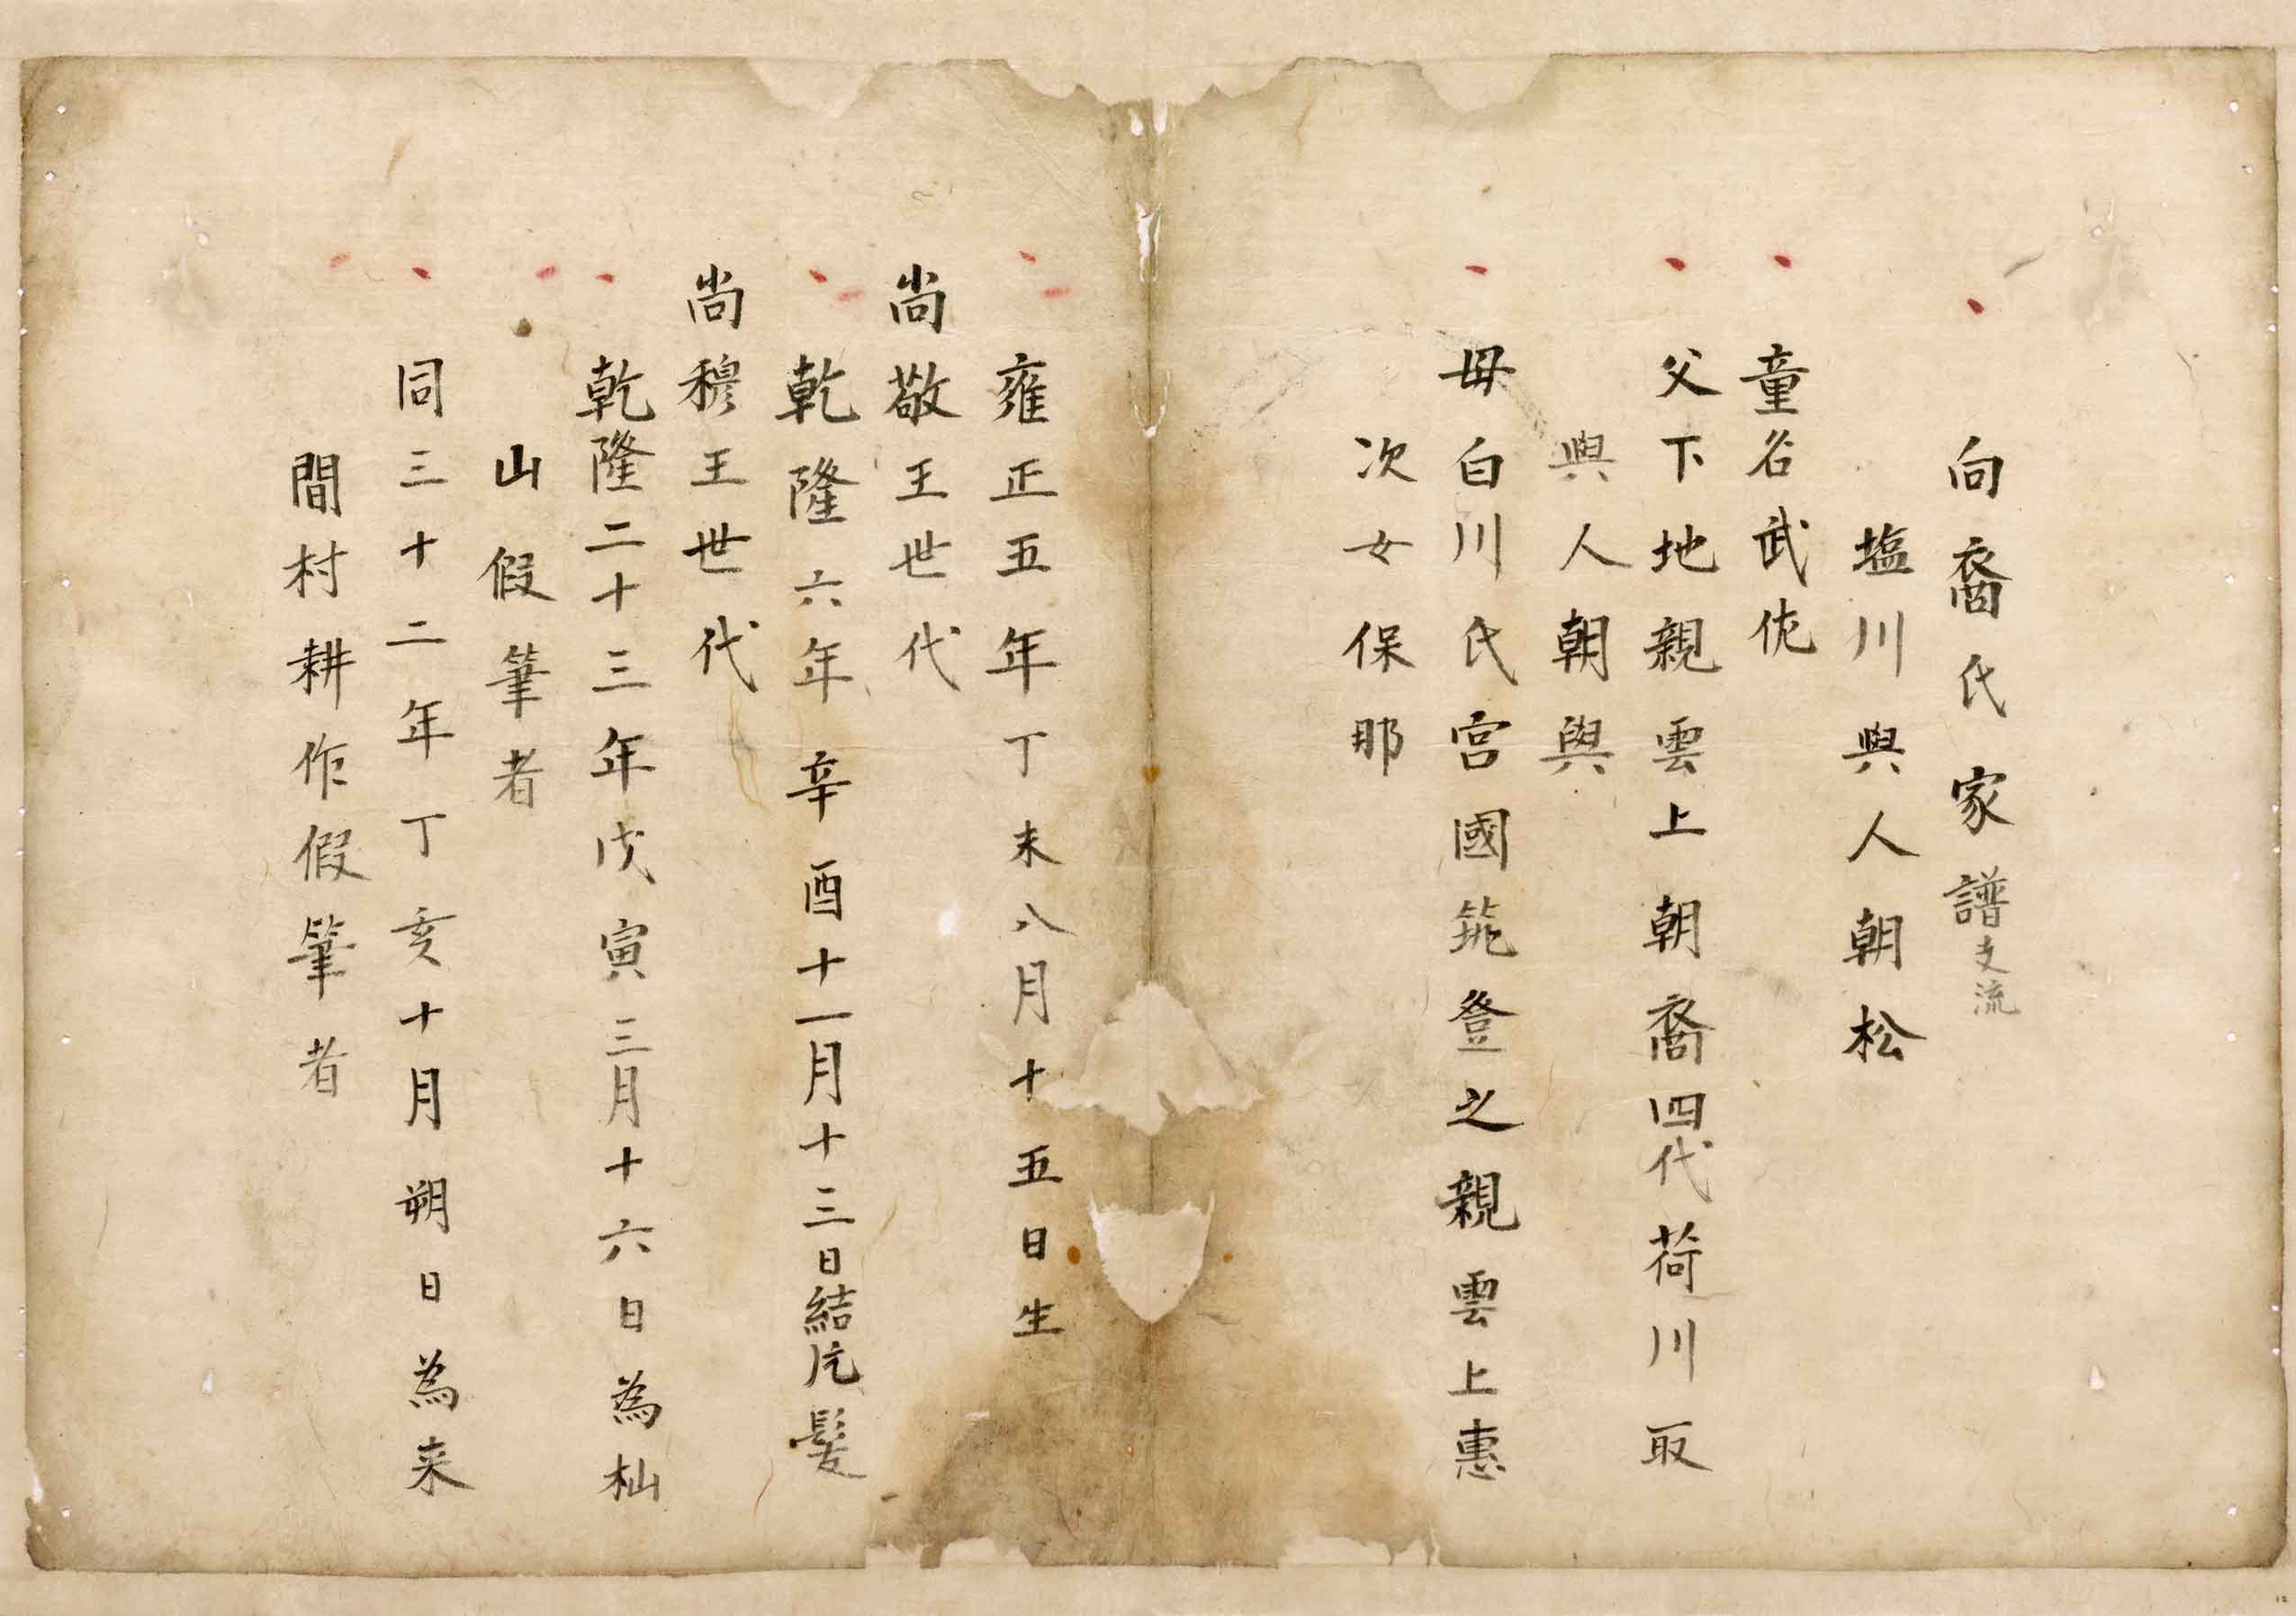 向裔氏家譜支流
塩川與人朝松
童名武佐
父下地親雲上朝裔四代荷川取
與人朝與
母白川氏宮國筑登之親雲上惠
次女保那
雍正五年丁未八月十五日生
尚敬王世代
乾隆六年辛酉十一月十三日結片髪
尚穆王世代
乾隆二十三年戊寅三月十六日為杣
山假筆者
同三十二年丁亥十月朔日為来
間村耕作假筆者